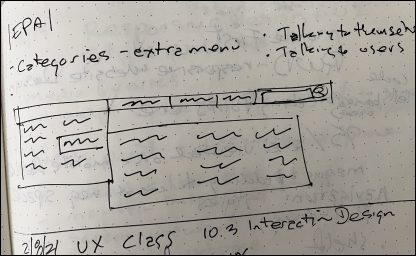 |EPA|
· Categories - extra menu
· Talking to themselv
· Talking to users
2/8/21 UX Class 10.3 Interaction Design